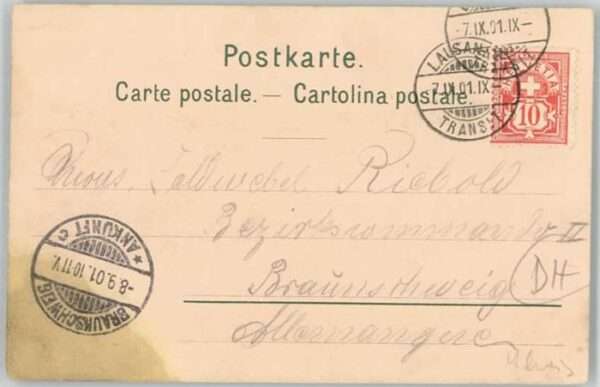 Postkarte.
Carte postale. — Cartolina postale.
-7.IX.01.IX-
LAUSANNE
-7.IX.01.IX-
TRANSIT
HELVETIA
10
Feldwebel Riebold
Bezirkscommando II
Braunschweig
DH
Allemangne
ANKUNFT C
-8.9.01.10-11V.
BRAUNSCHWEIG